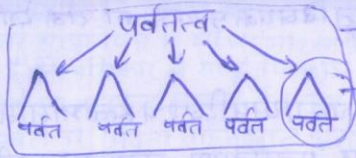 पर्वतत्व
पर्वत पर्वत पर्वत पर्वत पर्वत